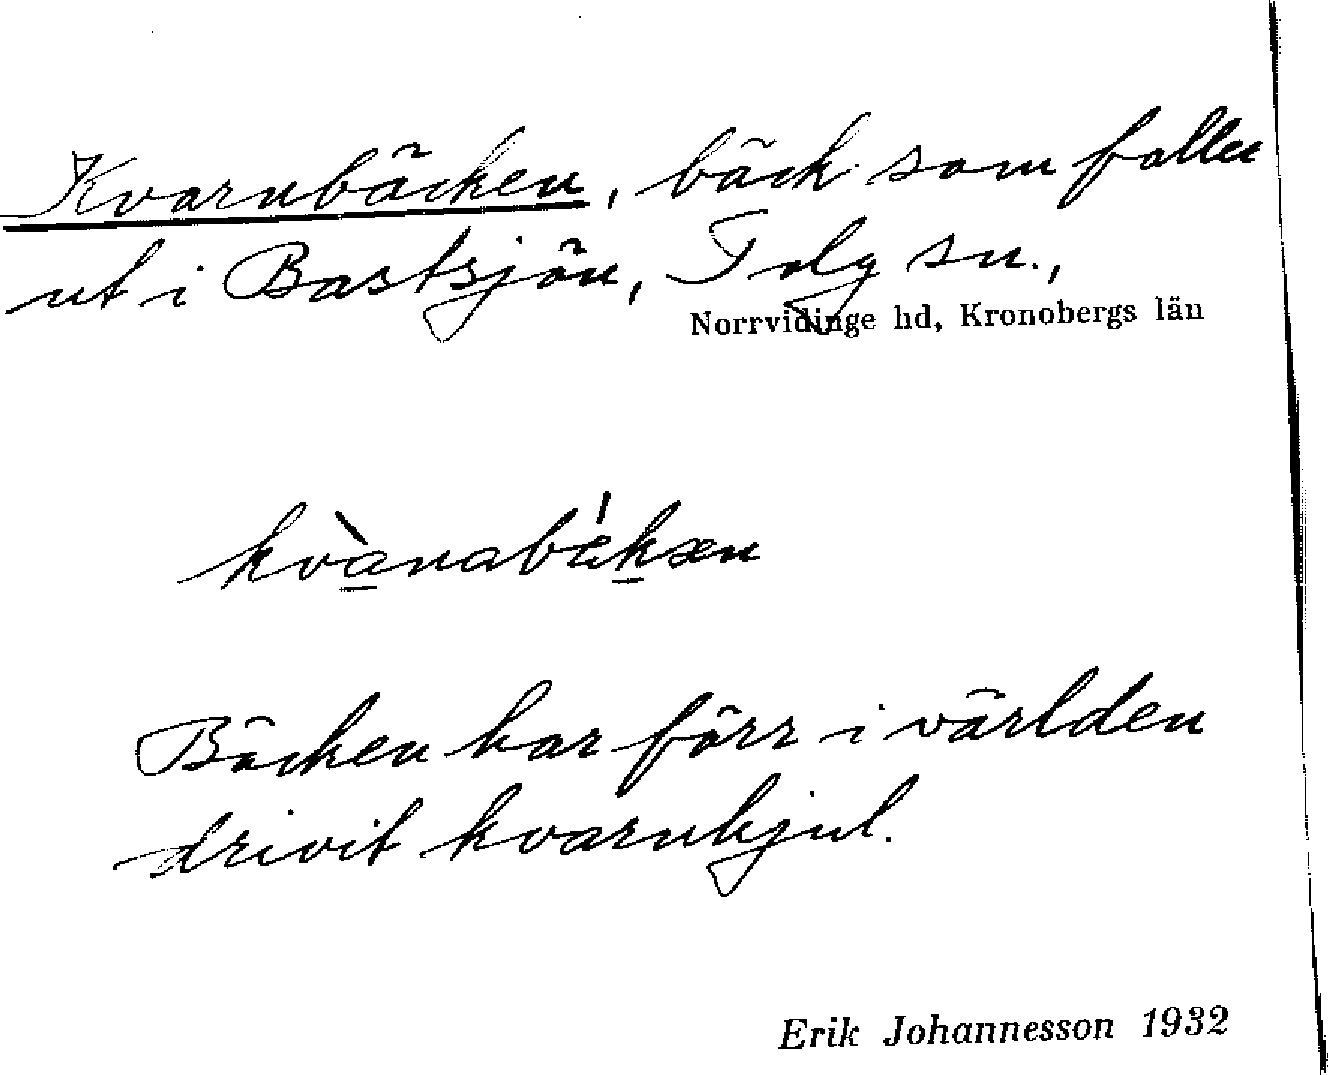 Kvarnbäcken, bäck som faller
ut i Bastsjön, Tolg sn.,
Norrvidinge hd, Kronobergs län
kvànabékæn
Bäcken har förr i världen
drivit kvarnhjul.
Erik Johannesson 1932